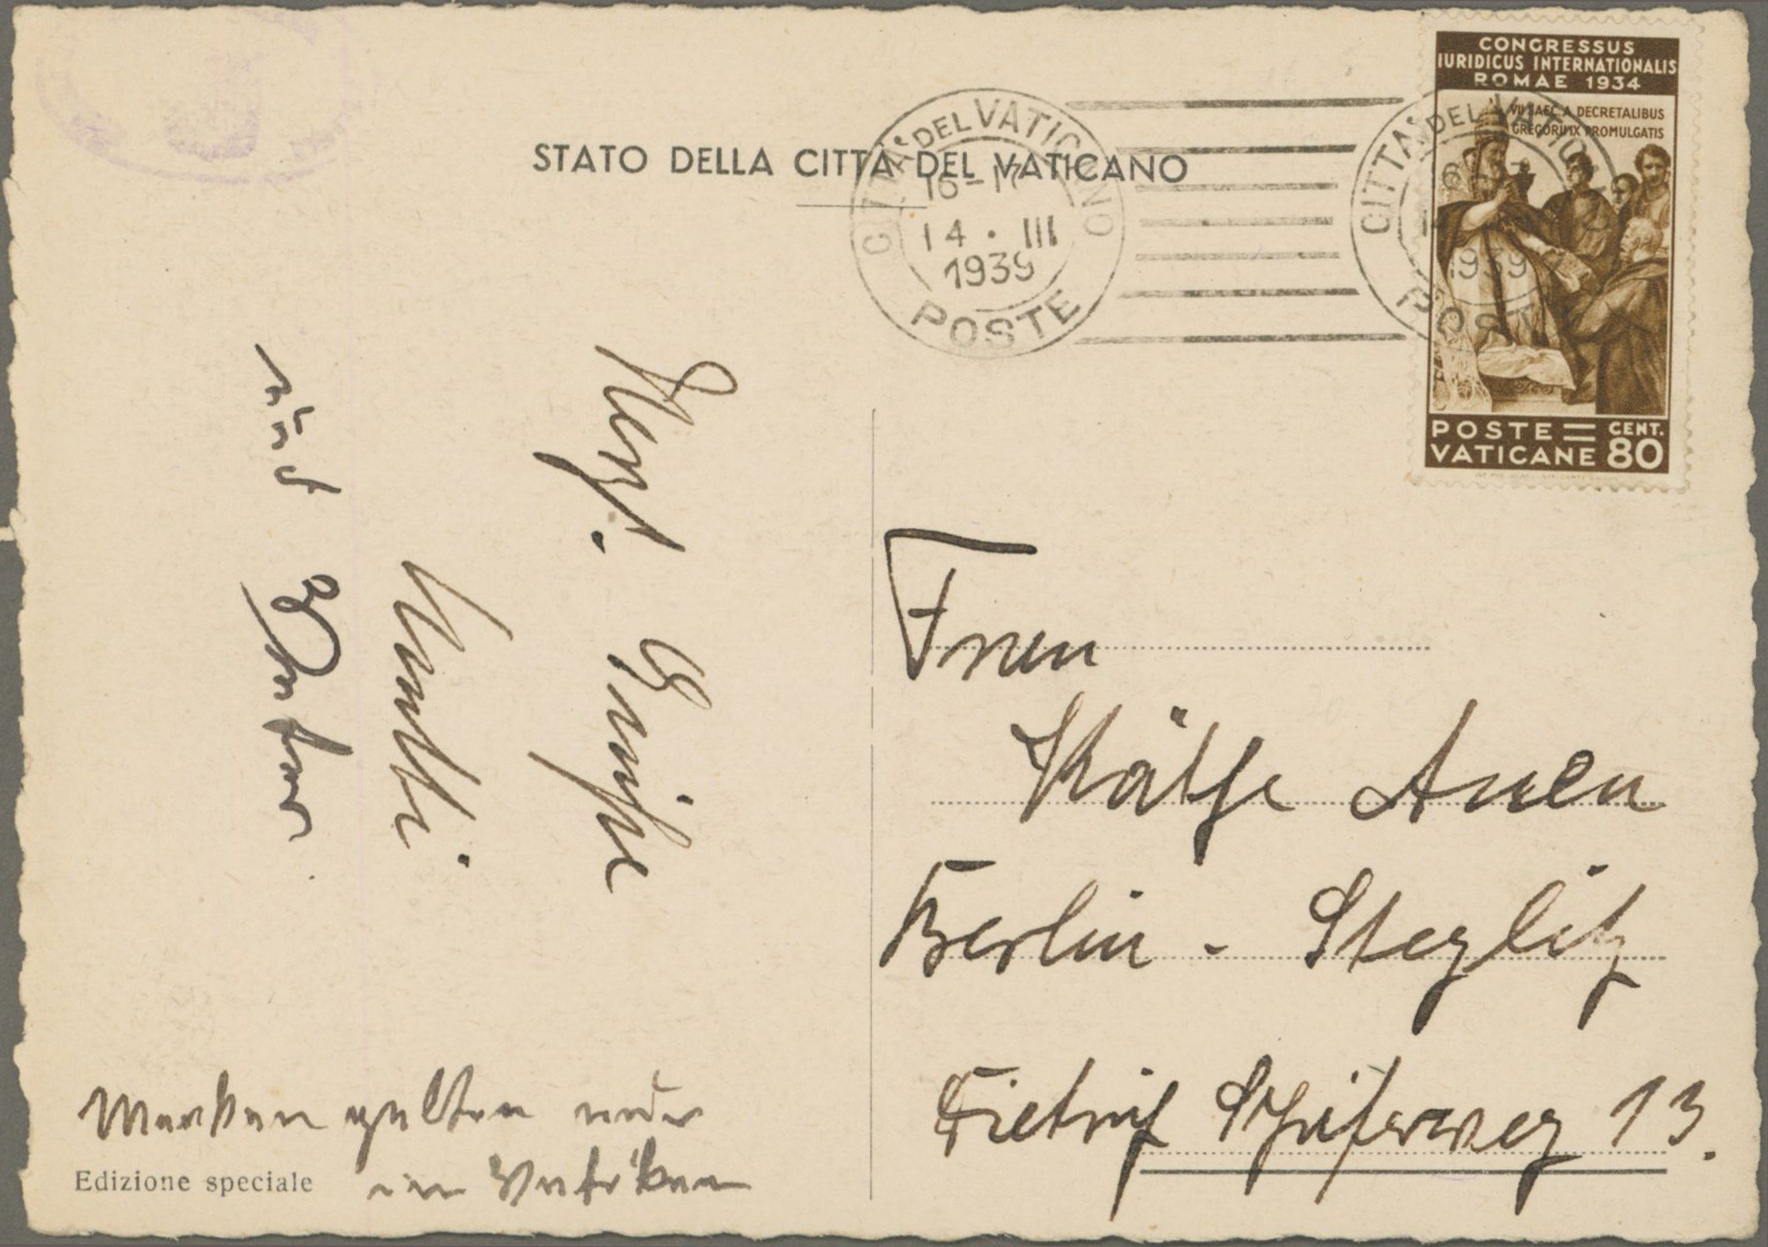 STATO DELLA CITTÀ DEL VATICANO
CITTA' DEL VATICANO
16-17
14 · III
1939
POSTE
CITTA' DEL VATICANO
1939
POSTE
CONGRESSUS
IURIDICUS INTERNATIONALIS
ROMAE 1934
VII SAEC. A DECRETALIBUS
GREGORII IX PROMULGATIS
POSTE
VATICANE
CENT.
80
Herzl. Grüße
Mutti
und Vater
Frau
Käthe Auen
Berlin - Steglitz
Dietrich Schäferweg 13.
Marken gelten nur
im Vatikan
Edizione speciale